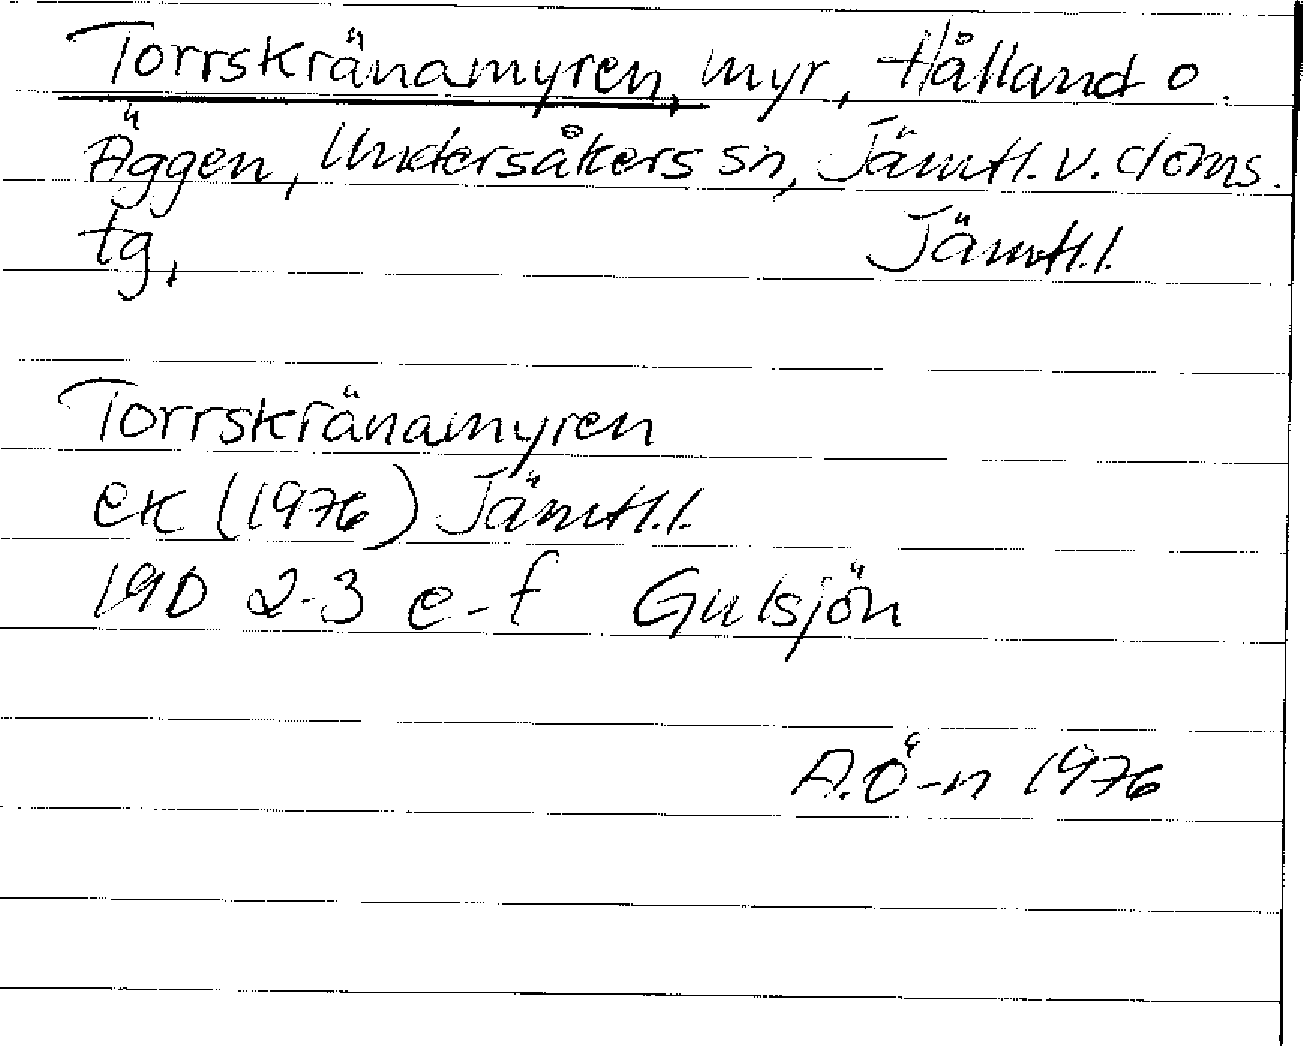 Torrskränamyren, myr, Hålland o.
Äggen, Undersåkers sn, Jämtl. v. doms.
tg, Jämtl.l.
Torrskränamyren
ek (1976) Jämtl.l.
19D 2-3 e-f Gulsjön
A.Ö-n 1976